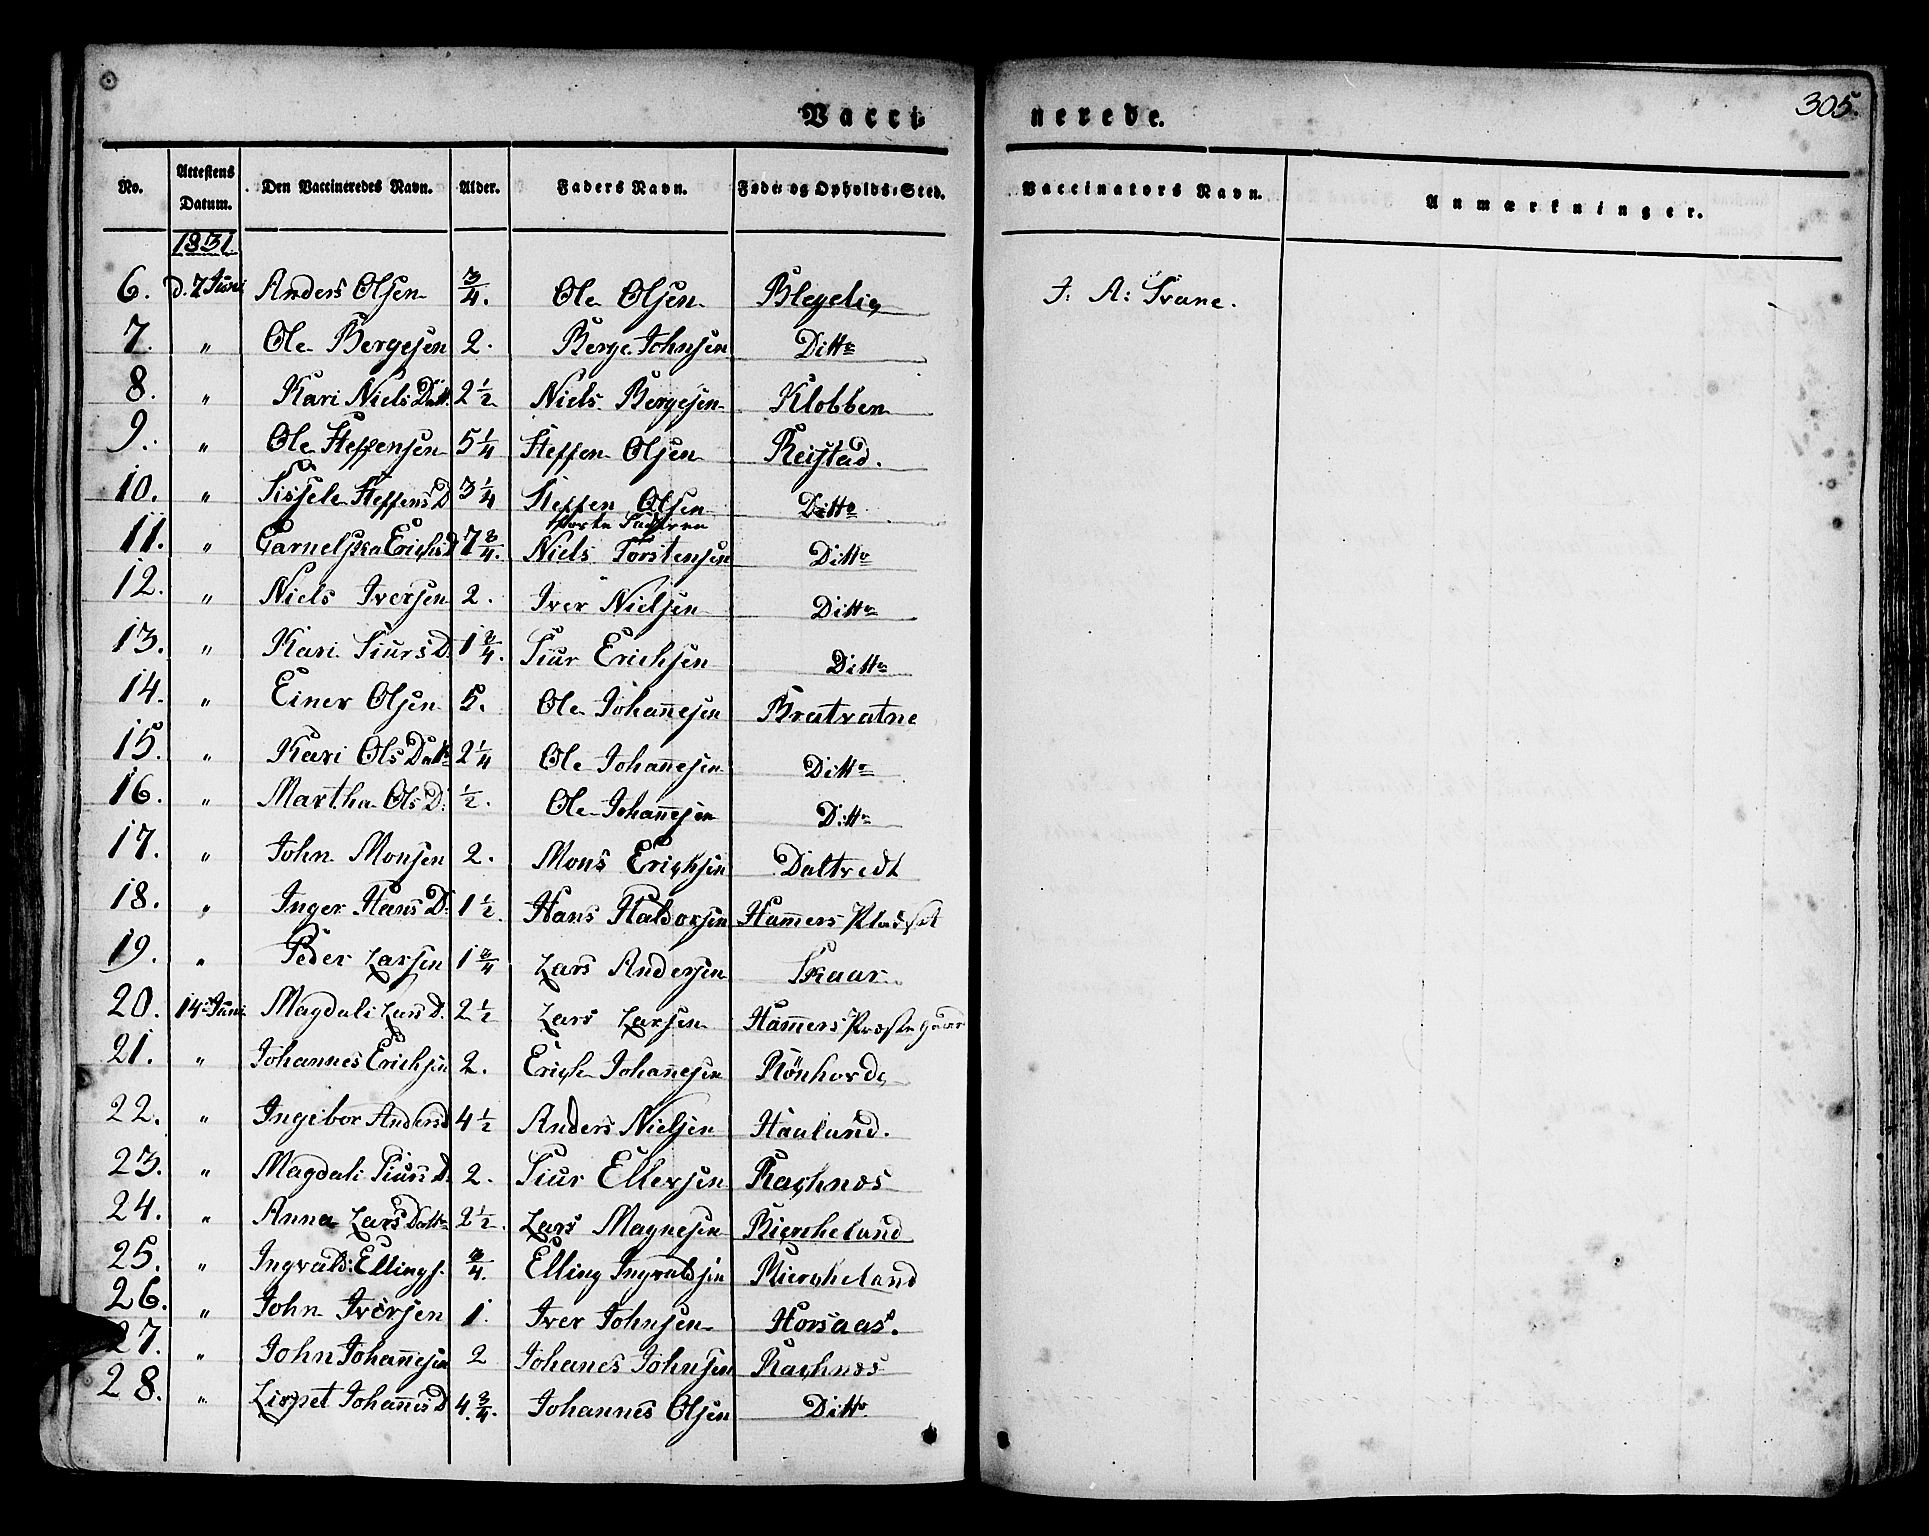 305.
Vacci- nerede.
No. Attestens Datum. Den Vaccineredes Navn. Alder. Faders Navn. Føde- og Opholds-Sted. Vaccinators Navn. Anmærkninger.
1831.
6. d. 7 Juni Anders Olsen 3/4. Ole Olsen J. A: Svane.
7. " Ole Bergesen 2. Berge Johnsen Ditto
8. " Kari Niels Datt. 2 1/2 Niels Bergesen Klobben
9. " Ole Steffensen 5 1/4 Steffen Olsen Reistad.
10. " Sissele Steffens D 3 1/4 Steffen Olsen Ditto
11. " Erichs D 7 3/4. Niels Torstensen Ditto
12. " Niels Iversen 2. Iver Nielsen Ditto
13. " Kari Siurs D. 1 3/4. Siur Erichsen Ditto
14. " Einer Olsen 5. Ole Johan̄esen Bratvatne
15. " Kari Ols Datt 2 1/4 Ole Johan̄esen Ditto
16. " Martha Ols D. 1/2. Ole Johan̄esen Ditto
17. " John Monsen 2. Mons Erichsen Daltredt
18. " Inger Hans D. 1 1/2. Hans Haldorsen Ham̄ers Pladset
19. " Peder Larsen 1 3/4 Lars Andersen Skaar
20. 14 Juni Magdali Lars D. 2 1/2 Lars Larsen Ham̄ers Præstegaar
21. " Johannes Erichsen 2. Erich Johan̄esen Rönhovde
22. " Ingebor Andersd 4 1/2 Anders Nielsen Hauland.
23. " Magdali Siurs D. 2. Siur Ellersen Rachnes
24. " Anna Lars Datter 2 1/2. Lars Magnesen Bircheland
25. " Ingvald Ellings. 3/4. Elling Ingvaldsen Bircheland
26. " John Iversen 1. Iver Johnsen Horsaas.
27. " John Johan̄esen 2 Johanes Johnsen Rachnes
28. " Lispet Johan̄es D 4. 3/4. Johannes Olsen Ditto.